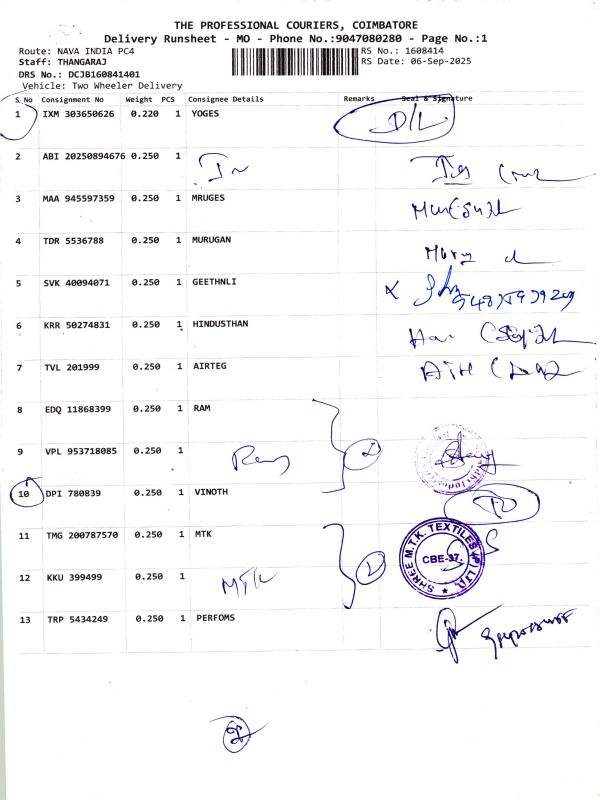 THE PROFESSIONAL COURIERS, COIMBATORE
Delivery Runsheet - MO - Phone No.:9047080280 - Page No.:1
Route: NAVA INDIA PC4
RS No.: 1608414
Staff: THANGARAJ
RS Date: 06-Sep-2025
DRS No.: DCJB160841401
Vehicle: Two Wheeler Delivery
S No Consignment No Weight PCS Consignee Details Remarks Seal & Signature
1 IXM 303650626 0.220 1 YOGES D/L
2 ABI 20250894676 0.250 1
3 MAA 945597359 0.250 1 MRUGES
4 TDR 5536788 0.250 1 MURUGAN
5 SVK 40094071 0.250 1 GEETHNLI
6 KRR 50274831 0.250 1 HINDUSTHAN
7 TVL 201999 0.250 1 AIRTEG
8 EDQ 11868399 0.250 1 RAM
9 VPL 953718085 0.250 1
10 DPI 780839 0.250 1 VINOTH
11 TMG 200787570 0.250 1 MTK
SHREE M.T.K. TEXTILES (P) LTD.
CBE-37.
12 KKU 399499 0.250 1 MTK
13 TRP 5434249 0.250 1 PERFOMS